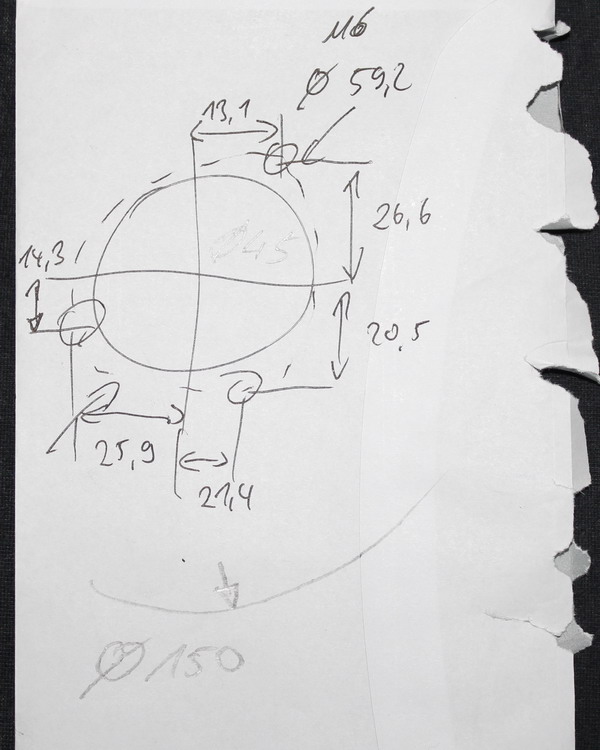 M6
Ø 59,2
13,1
26,6
Ø45
14,3
20,5
25,9
21,4
Ø150